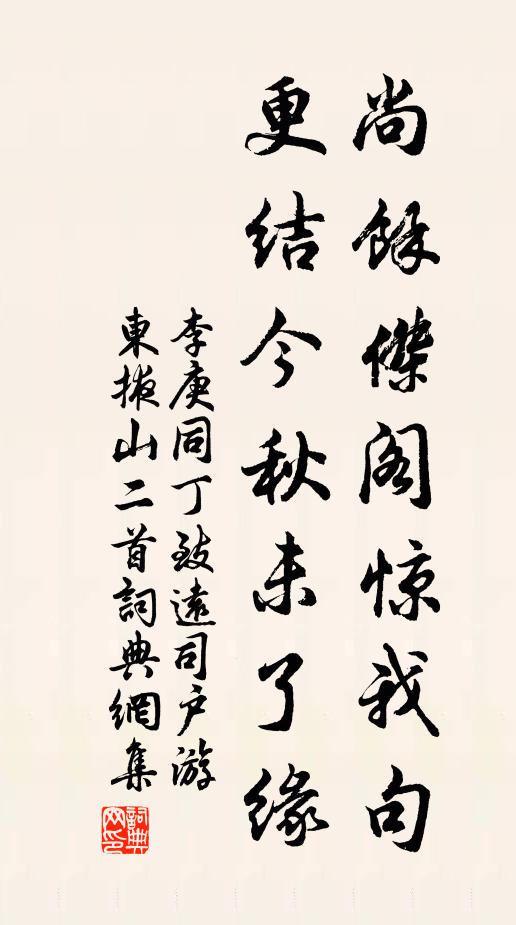 尚餘傑阁惊我句
更结今秋未了缘
李庚同丁致遠司户游
東掖山二首詞典網集
詞典网印